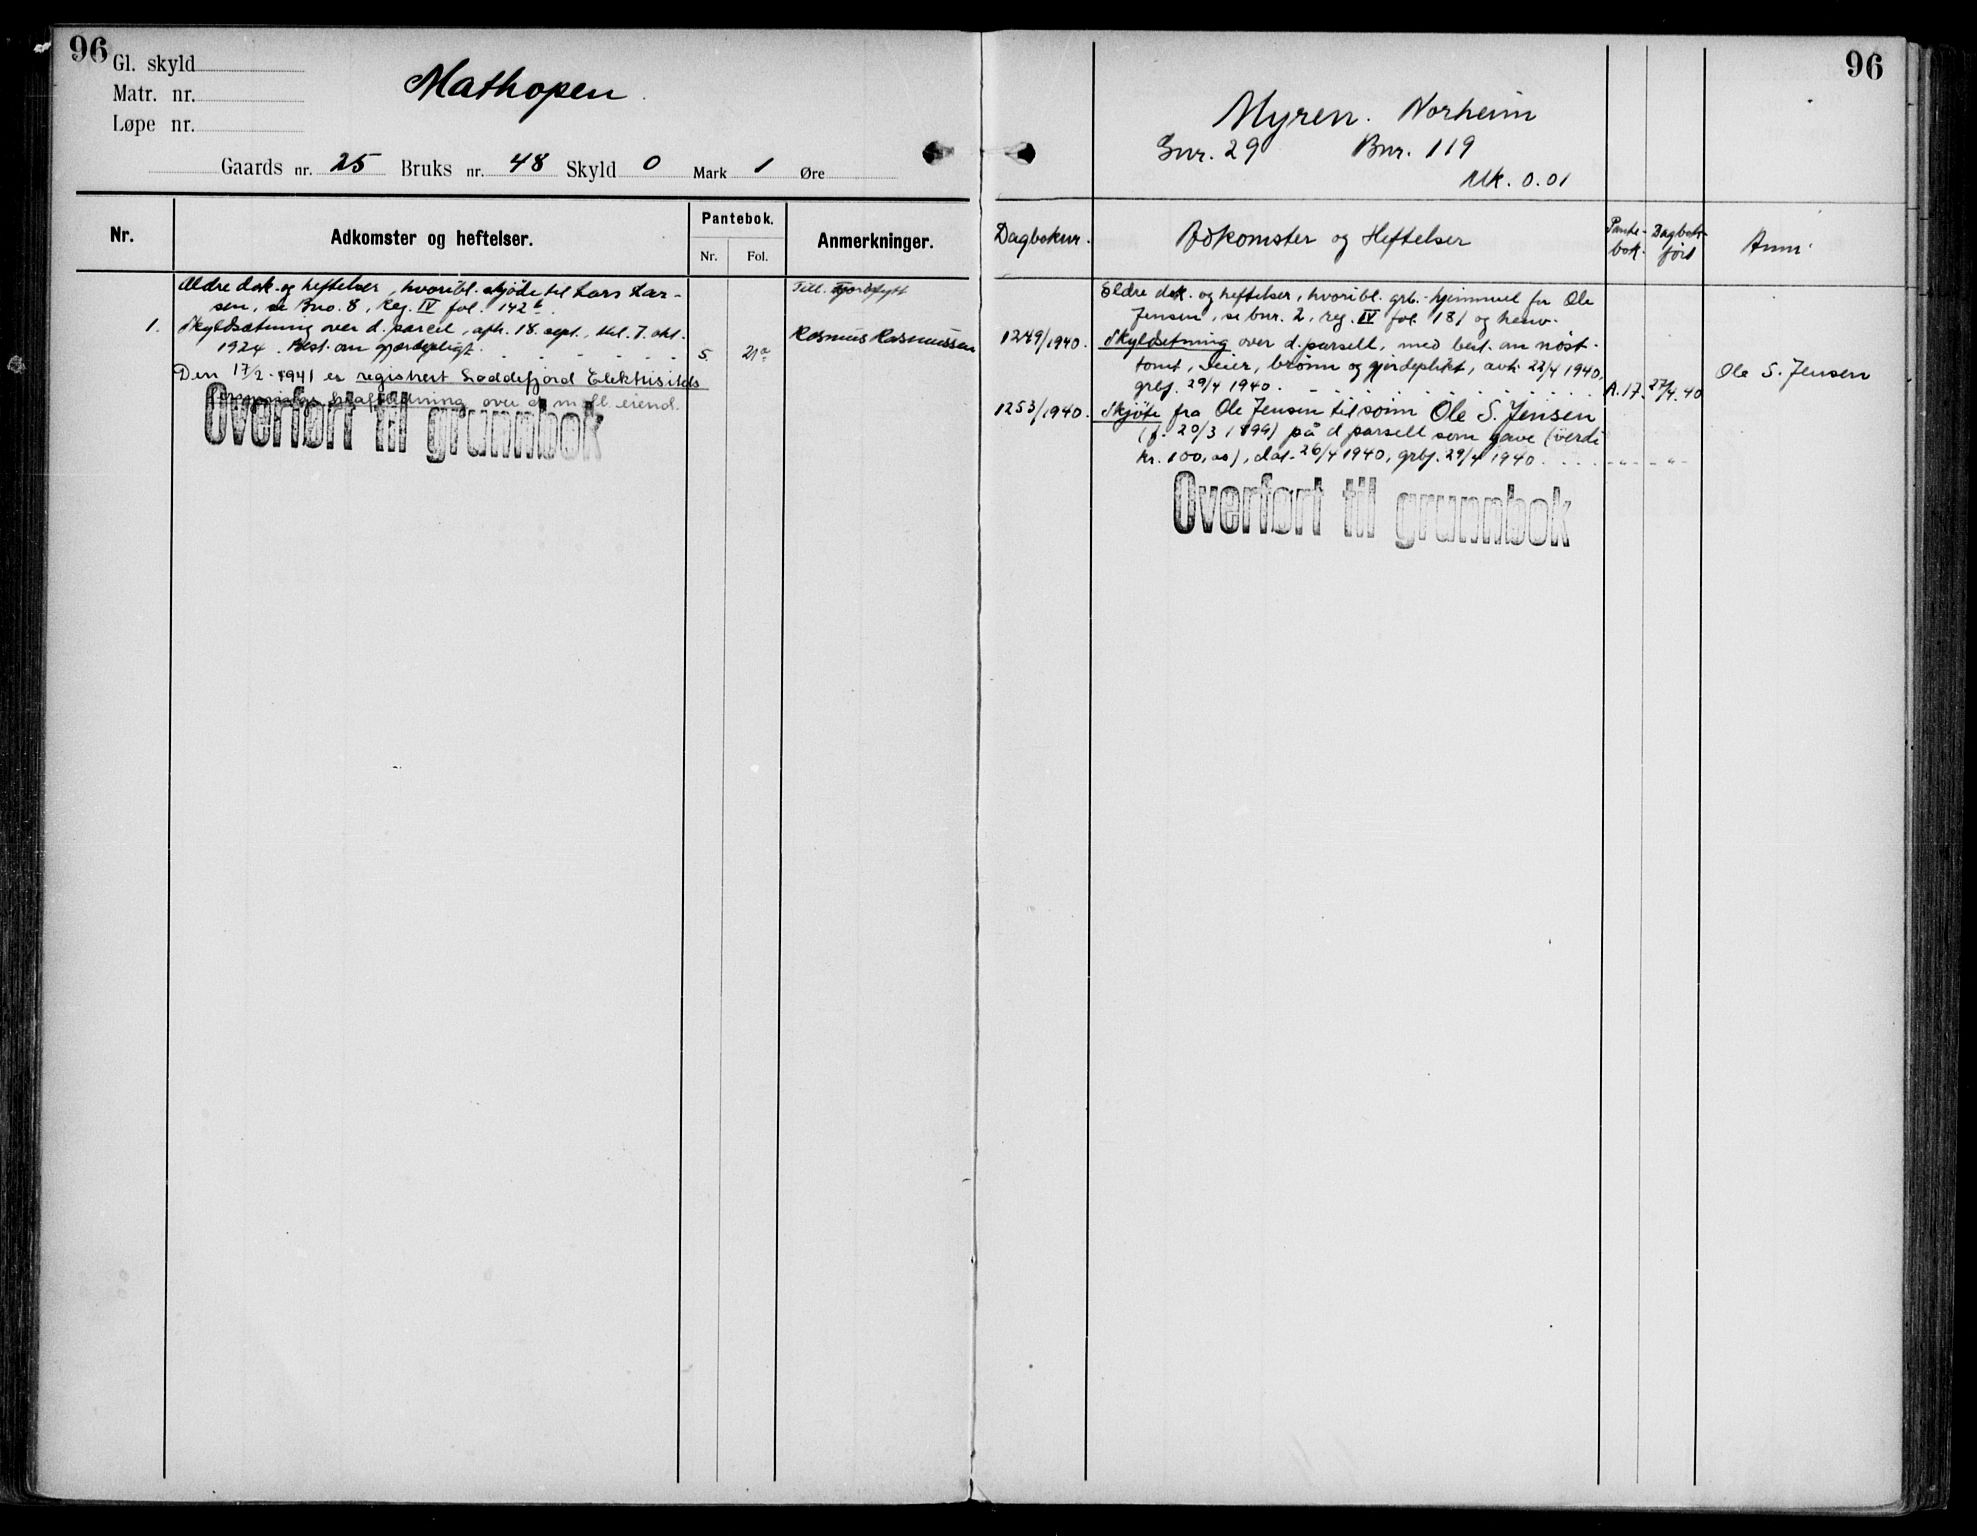 96
Gl. skyld
Matr. nr.
Løpe nr.
Mathopen
Gaards nr. 25 Bruks nr. 48 Skyld 0 Mark 1 Øre
Nr.
Adkomster og heftelser.
Pantebok.
Nr.
Fol.
Anmerkninger.
Ældre dok. og heftelser, hvoribl. skjøde til Lars Lar-
sen, se Bno. 8, Reg. IV fol. 142b.
1. Skyldsætning over d. parcel, afh. 18. sept., tkl. 7. okt.
1924. Best. om gjærdepligt. 5. 21a
Den 17/2-1941 er registrert Loddefjord Elektrisitets
kraftledning over d. m. fl. eiend.
Overført til grunnbok
Till.
Rasmus Rasmussen
96
Myren. Norheim
Gnr. 29 Bnr. 119
Mk. 0.01
Dagboknr.
Adkomster og Heftelser
Pante-
bok.
Dagbok-
ført
Anm.
Eldre dok. og heftelser, hvoribl. grb.-hjemmel for Ole
Jensen, se bnr. 2, reg. IV fol. 181 og henv.
1249/1940. Skyldsetning over d. parsell, med best. om nöst-
tomt, veier, brönn og gjerdeplikt, avh. 22/4 1940,
grbf. 29/4 1940. A.17. 27/4.40
Ole S. Jensen
1253/1940. Skjöte fra Ole Jensen til sönn Ole S. Jensen
(f. 20/3 1899) på d parsell som gave (verdi
kr. 100,00), dat. 26/4 1940, grbf. 29/4 1940. - " - - " -
Overført til grunnbok